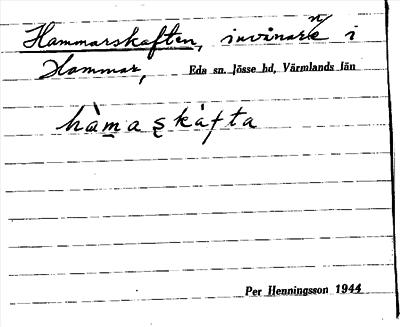 Hammarskaften, invånare i
Hammar, Eda sn. Jösse hd, Värmlands län
hàmaskáfta
Per Henningsson 1944